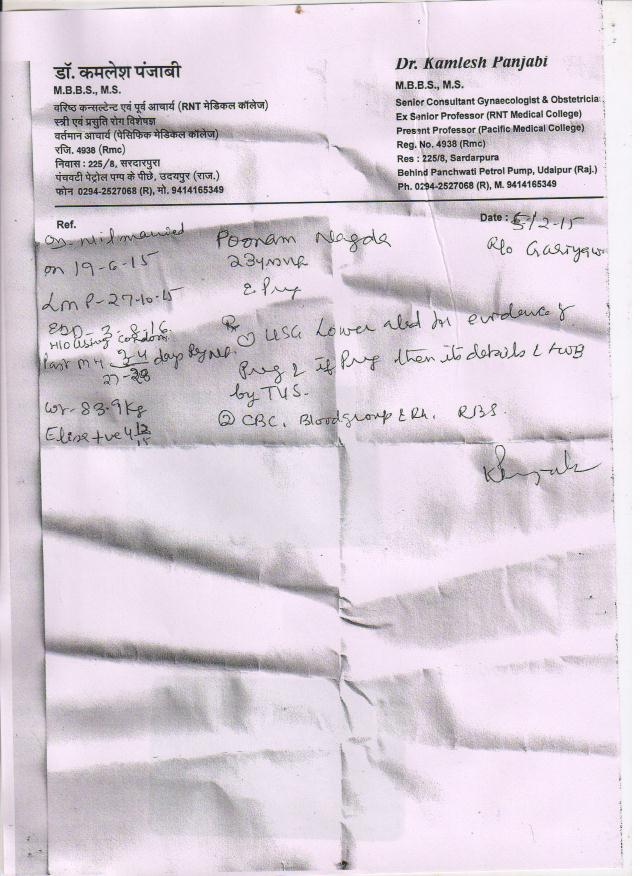 डॉ. कमलेश पंजाबी
M.B.B.S., M.S.
वरिष्ठ कन्सल्टेन्ट एवं पूर्व आचार्य (RNT मेडिकल कॉलेज)
स्त्री एवं प्रसुति रोग विशेषज्ञ
वर्तमान आचार्य (पेसिफिक मेडिकल कॉलेज)
रजि. 4938 (Rmc)
निवास : 225/8, सरदारपुरा
पंचवटी पेट्रोल पम्प के पीछे, उदयपुर (राज.)
फोन 0294-2527068 (R), मो. 9414165349
Dr. Kamlesh Panjabi
M.B.B.S., M.S.
Senior Consultant Gynaecologist & Obstetricia
Ex Senior Professor (RNT Medical College)
Present Professor (Pacific Medical College)
Reg. No. 4938 (Rmc)
Res : 225/8, Sardarpura
Behind Panchwati Petrol Pump, Udaipur (Raj.)
Ph. 0294-2527068 (R), M. 9414165349
Ref.
Date : 5/2-15
married
on 19-6-15
LMP-27-10-15
EDD- 3-8-16
H/o using condom
Past M4 3-4 days Reg
27-28
wt- 83.9kg
Elisa +ve 4/12/15
Poonam Nagda
R/o
23
Preg
Rx
① USG Lower abd for evidence of
Preg & if Preg then its details & FWB
by TVS.
② CBC, Bloodgroup & Rh. RBS.